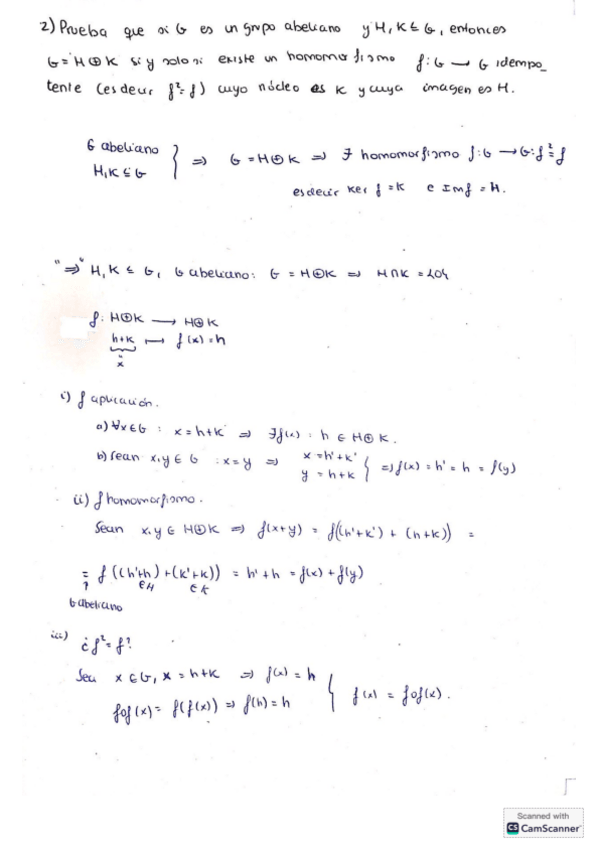 2) Prueba que si G es un grupo abeliano y H, K ≤ G, entonces
G = H⊕K si y solo si existe un homomorfismo f: G → G idempo_
tente (es decir f² = f) cuyo núcleo es K y cuya imagen es H.
G abeliano
H, K ≤ G } ⇒ G = H⊕K ⇒ ∃ homomorfismo f: G → G : f² = f
es decir Ker f = K e Im f = H.
"⇒" H, K ≤ G, G abeliano: G = H⊕K ⇒ H∩K = {0}
f: H⊕K → H⊕K
h+k ↦ f(x) = h
x
i) f aplicación.
a) ∀x∈G : x = h+k ⇒ ∃f(x) : h ∈ H⊕K.
b) Sean x, y ∈ G : x = y ⇒ x = h'+k'
y = h+k } ⇒ f(x) = h' = h = f(y)
ii) f homomorfismo.
Sean x, y ∈ H⊕K ⇒ f(x+y) = f((h'+k') + (h+k)) =
= f((h'+h) + (k'+k)) = h'+h = f(x) + f(y)
↑ ∈H ∈K
G abeliano
iii) ¿f² = f?
Sea x ∈ G, x = h+k ⇒ f(x) = h
f∘f(x) = f(f(x)) ⇒ f(h) = h } f(x) = f∘f(x).
Scanned with
CS CamScanner